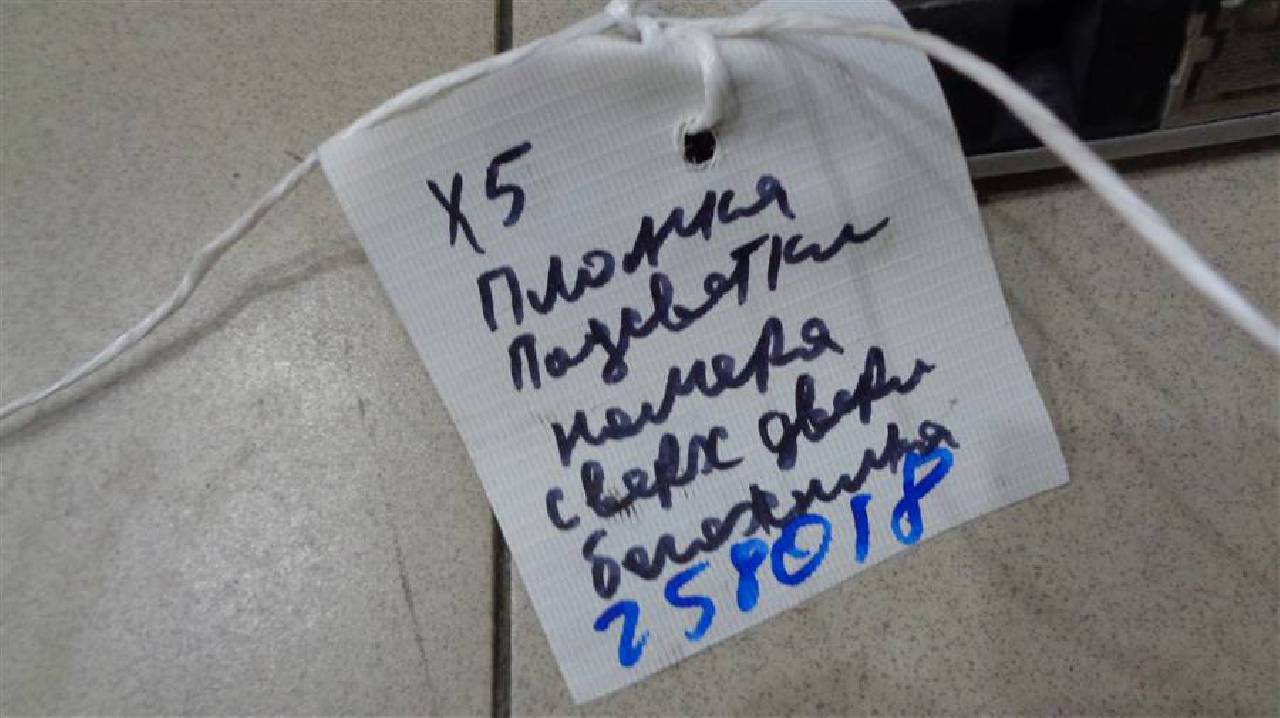 X5
Планка
Подсветки
номера
сверх двери
богажника
258018